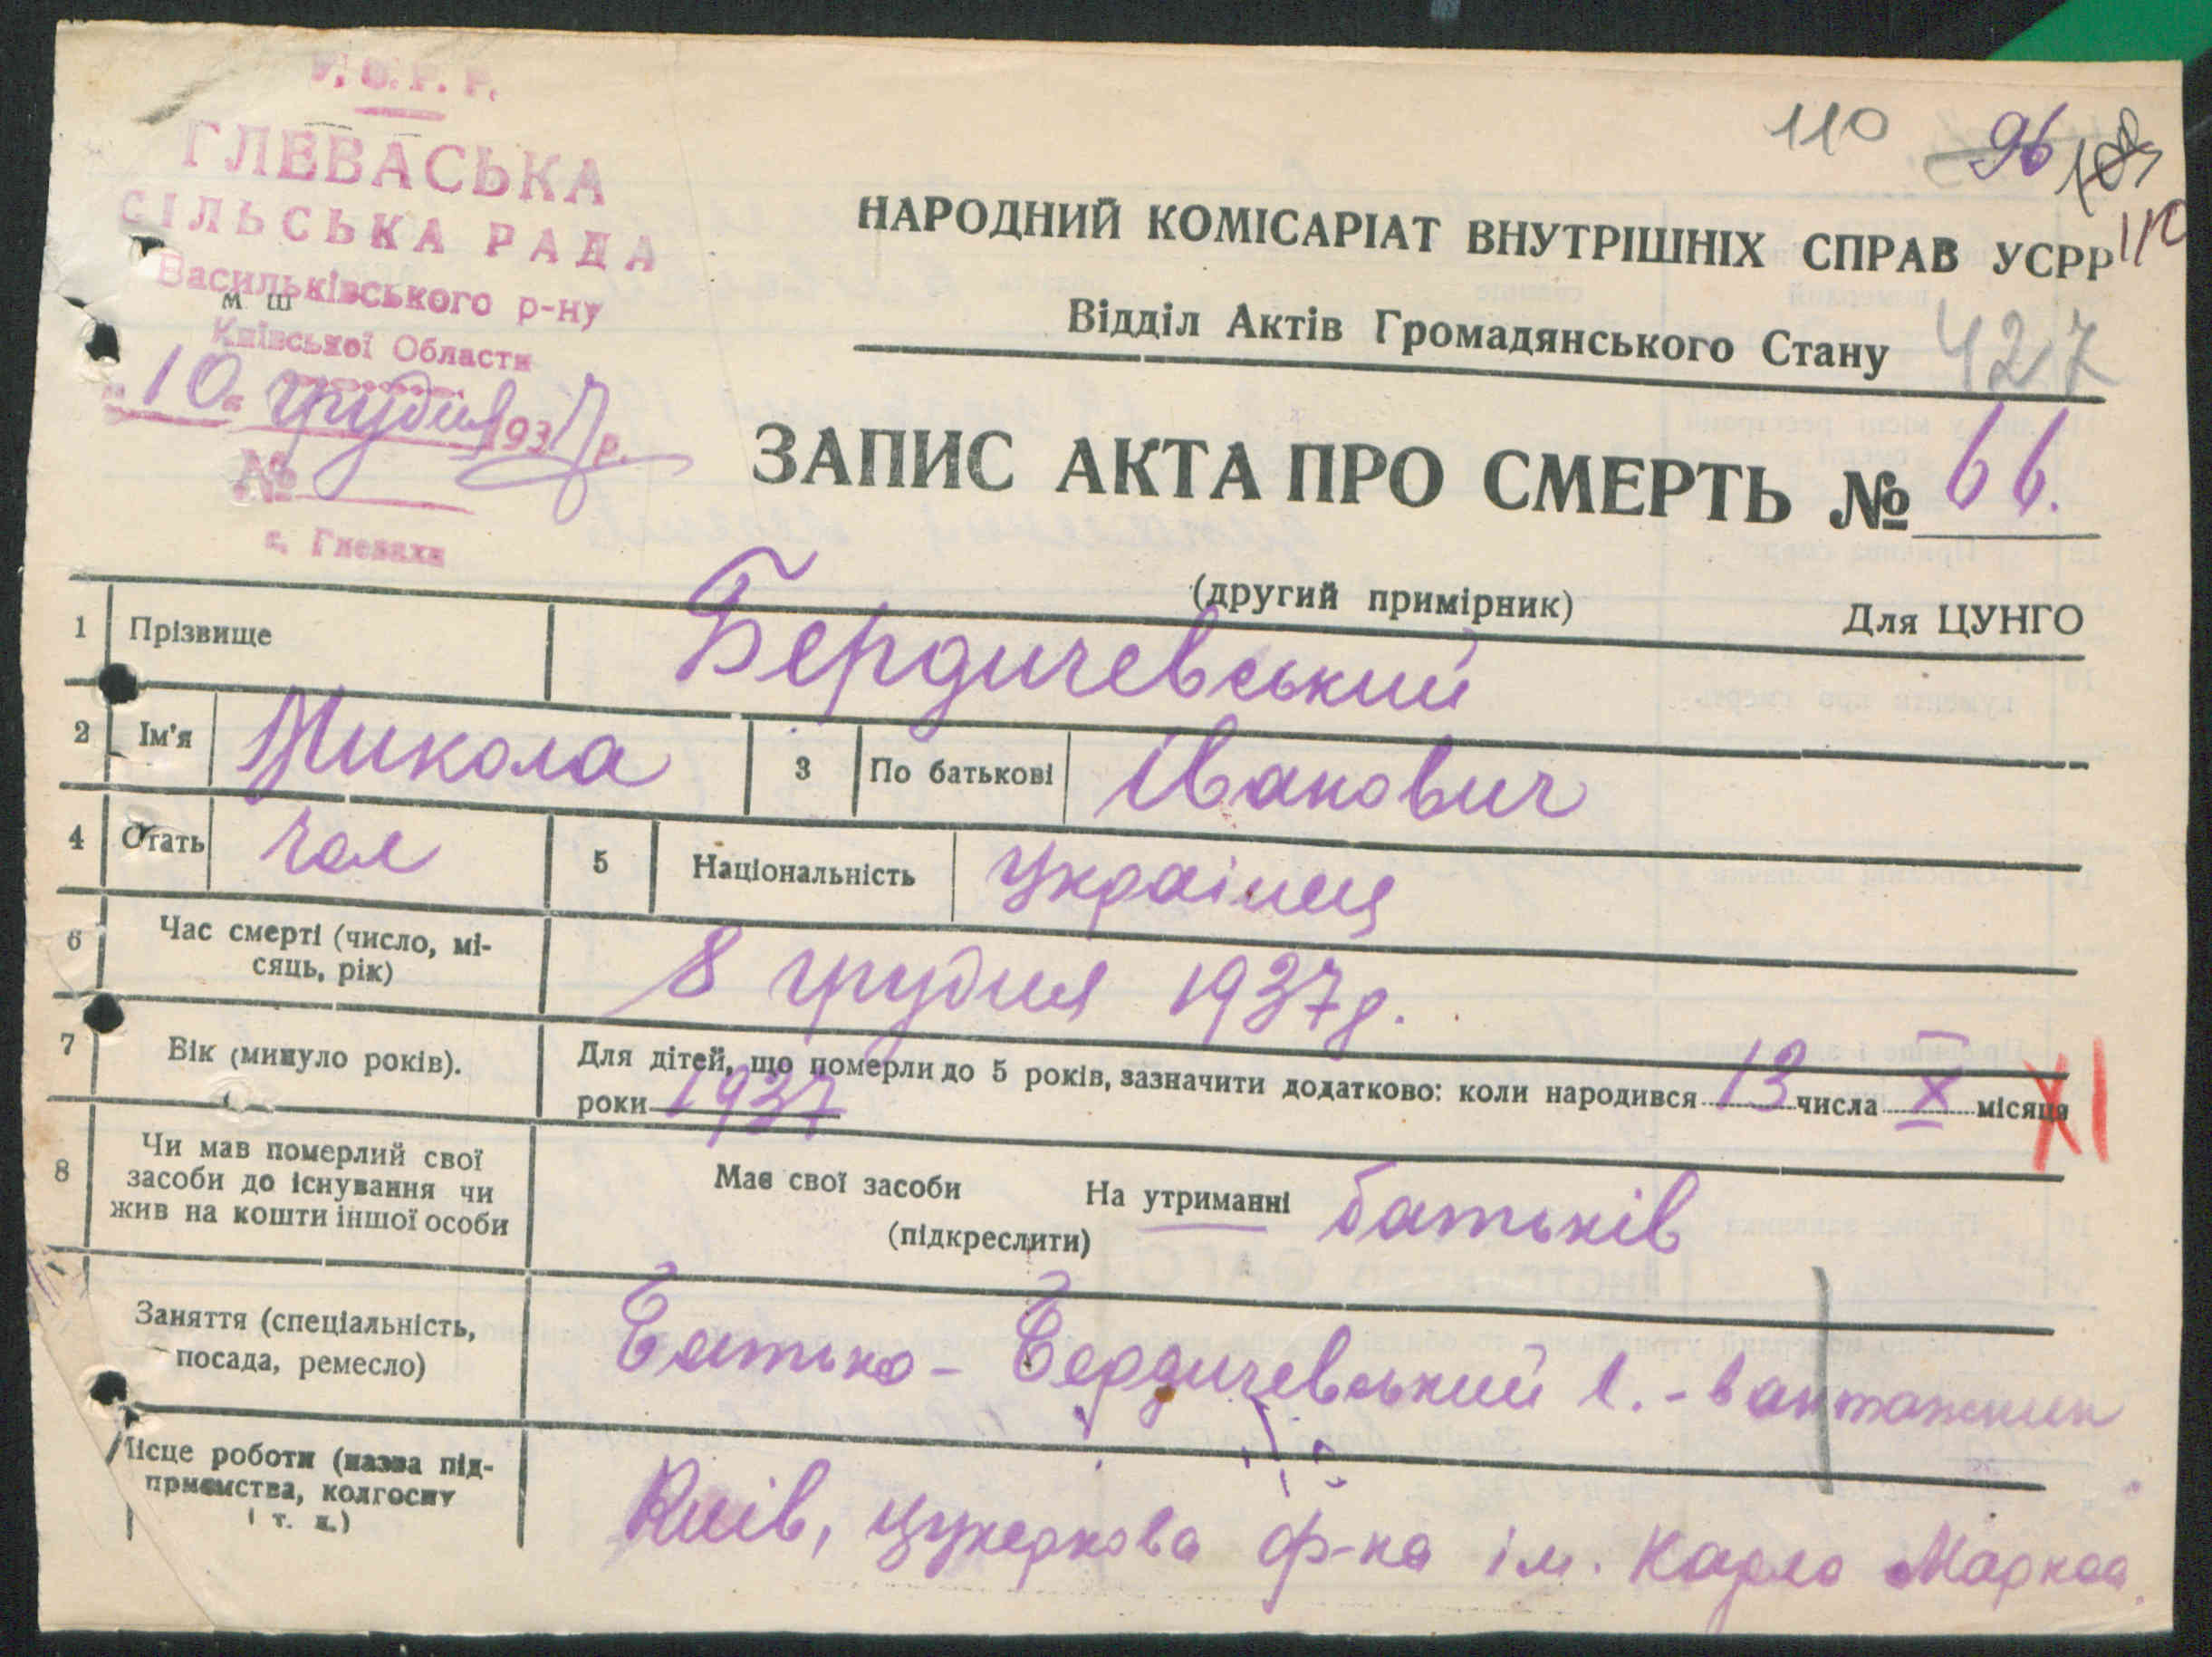 У. С. Р. Р.
ГЛЕВАСЬКА
СІЛЬСЬКА РАДА
Васильківського р-ну
М Ш
Київської Области
"10" грудня 1937 р.
№
с. Глеваха
110 96 109
110
НАРОДНИЙ КОМІСАРІАТ ВНУТРІШНІХ СПРАВ УСРР
Відділ Актів Громадянського Стану 427
ЗАПИС АКТА ПРО СМЕРТЬ № 66.
(другий примірник) Для ЦУНГО
1 Прізвище Бердичевський
2 Ім'я Микола 3 По батькові Іванович
4 Стать чол 5 Національність Українец
6 Час смерті (число, мі-
сяць, рік) 8 грудня 1937 р.
7 Вік (минуло років). Для дітей, що померли до 5 років, зазначити додатково: коли народився 13 числа X місяця XI
роки 1937
8 Чи мав померлий свої
засоби до існування чи
жив на кошти іншої особи
Має свої засоби На утриманні батьків
(підкреслити)
Заняття (спеціальність,
посада, ремесло) Батько - Бердичевський І. - вантажник
Місце роботи (назва під-
приємства, колгоспу
і т. д.) Київ, цукеркова ф-ка ім. Карла Маркса.